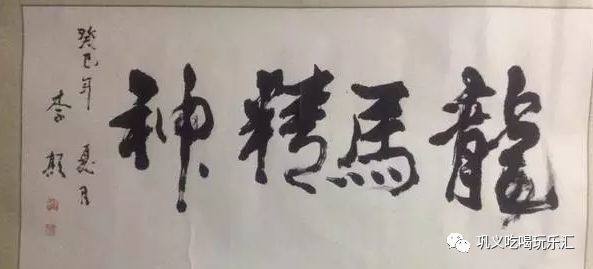 龍馬精神
癸巳年
夏月
李
巩义吃喝玩乐汇